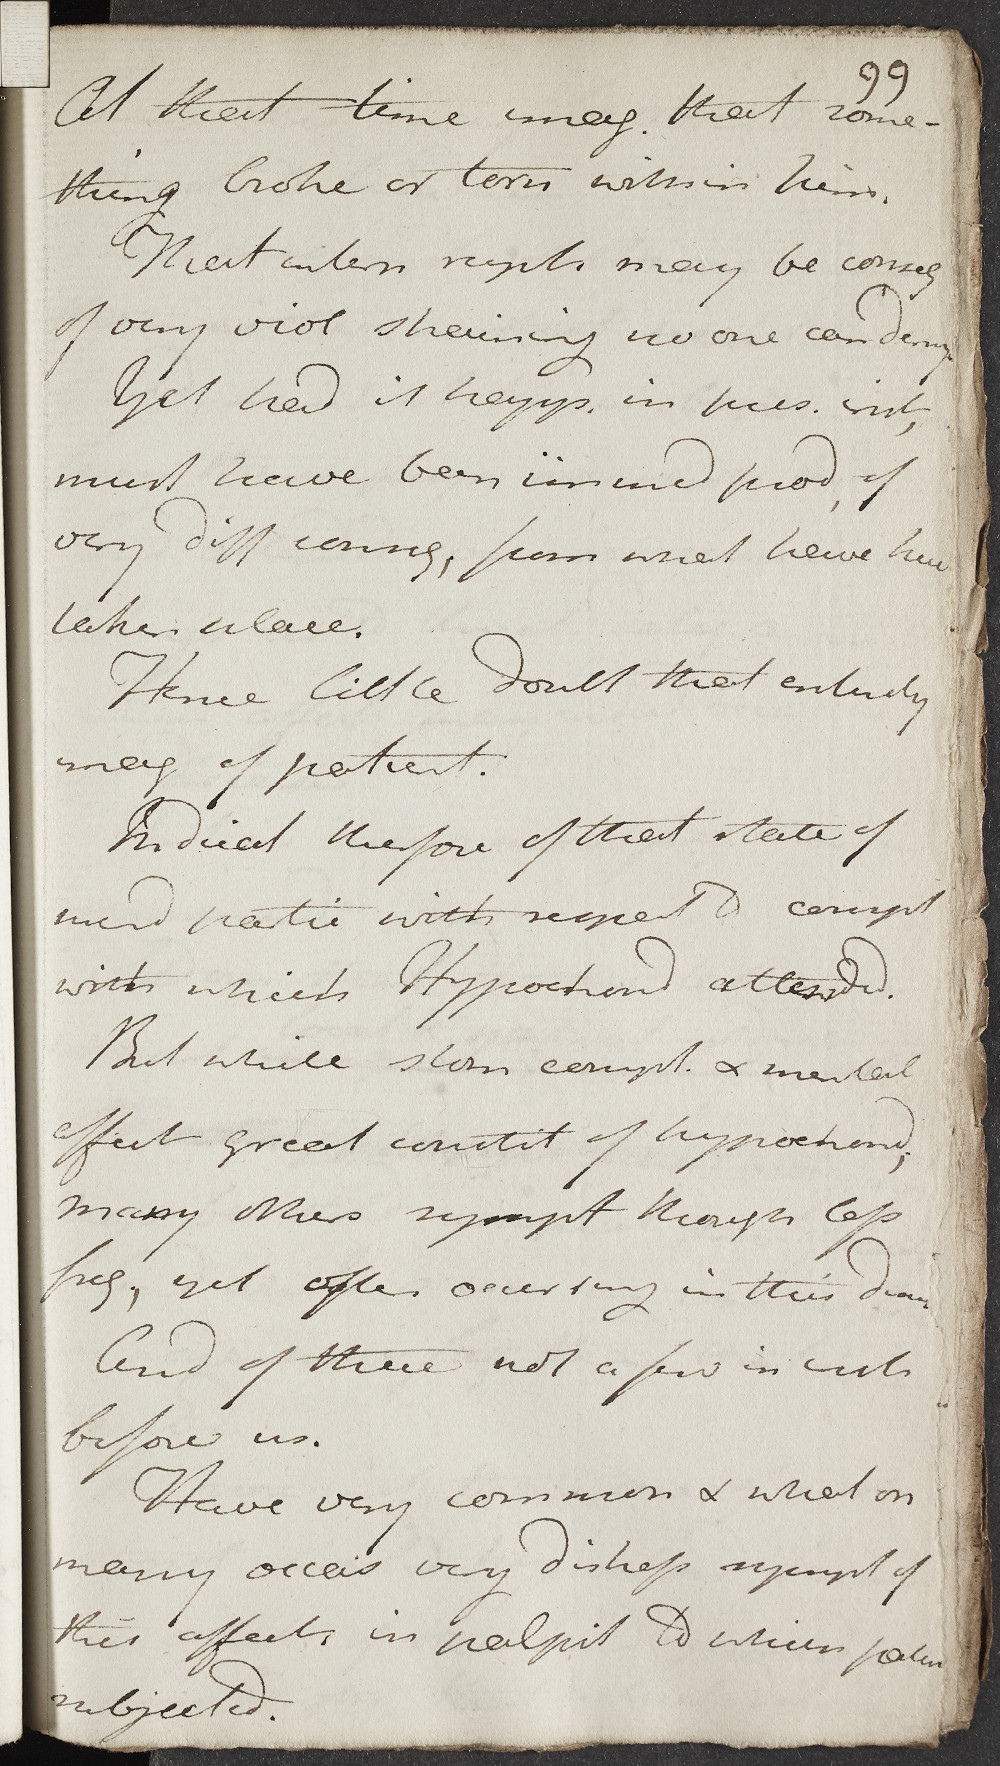 99
At that time imag. that some-
thing broke or torn within him.
That intern rupt. may be conseq
of very viol straining no one can deny
Yet had it happ. in pres. inst,
must have been immed prod, of
very diff conseq, from what have here
taken place.
Hence little doubt that entirely
imag of patient.
Indicat therefore of that state of
mind partic with respect to compt
with which Hypochond attended.
But while stom compt. & mental
affect great constit of hypochond,
many others sympt though less
freq, yet often occurring in this
And of these not a few in
before us.
Have very common & what on
many occas very distress sympt of
this affect, in palpit to which patien
subjected.